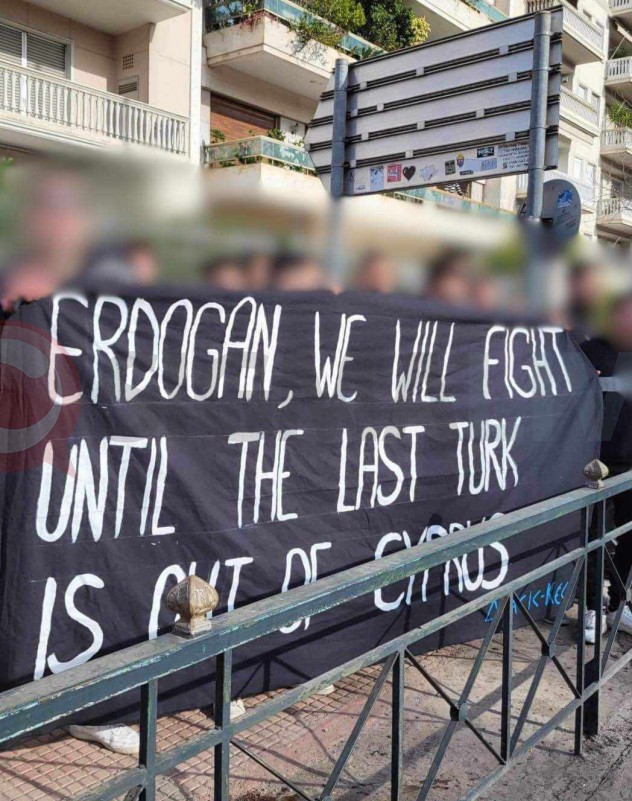 ERDOGAN, WE WILL FIGHT
UNTIL THE LAST TURK
IS OUT OF CYPRUS